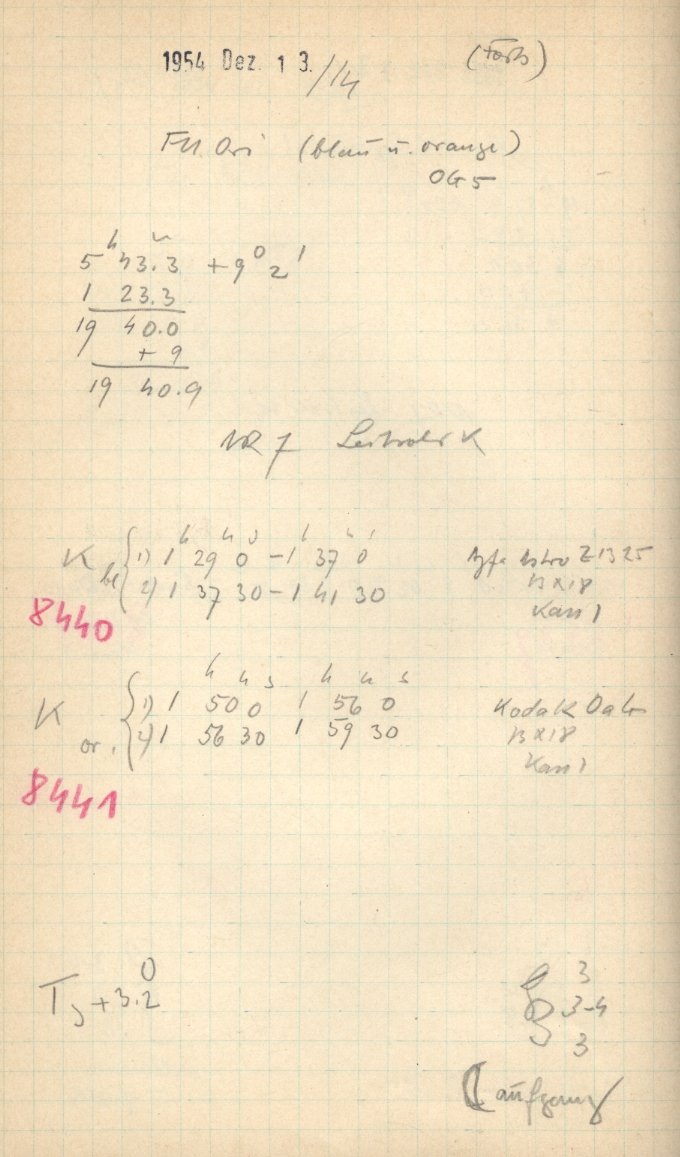 1954 Dez. 13./14 (Forts)
FU. Ori (blau u. orange)
OG5
5 h 43.3 m + 9° 2'
1 23.3
19 40.0
+ 9
19 40.9
NR 7 K
K bl { 1) 1 h 29 m 0 s - 1 h 37 m 0 s Agfa Astro Z1325
2) 1 37 30 - 1 41 30 13x18
Kass 1
8440
h m s h m s
K or. { 1) 1 50 0 1 56 0 Kodak OaE
2) 1 56 30 1 59 30 13x18
Kass 1
8441
T, + 3.2 0
3
3-4
3
☾ aufgang